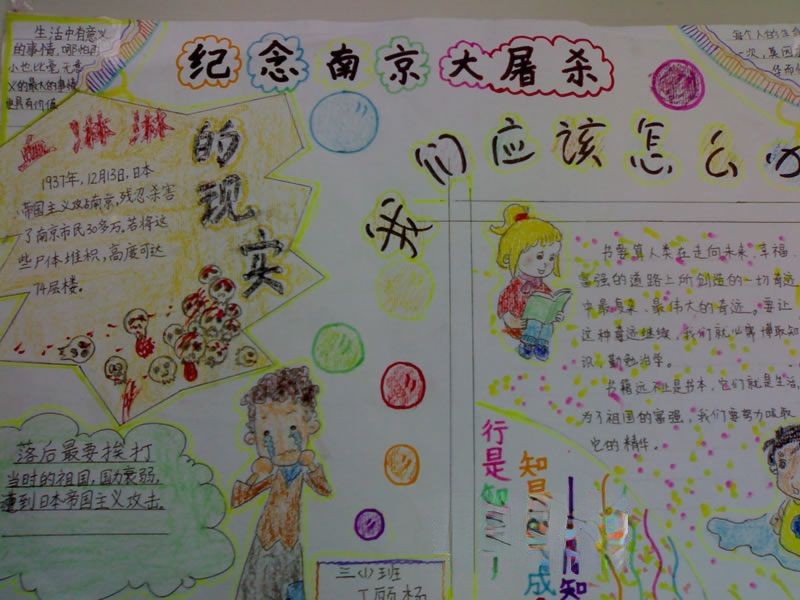 生活中有意义
的事情,哪怕再
小也比毫无意
义的最大的事情
更具有价值
纪念南京大屠杀
每个人的生命
一次,莫因
血淋淋
的现实
1937年,12月13日,日本
帝国主义攻占南京,残忍杀害
了南京市民30多万,若将这
些尸体堆积,高度可达
74层楼。
我们应该怎么办
书要算人类在走向未来、幸福、
富强的道路上所创造的一切奇迹
中最复杂、最伟大的奇迹。要让
这种奇迹继续,我们就必需博取知
识,勤勉治学。
书籍远不止是书本,它们就是生活,
为了祖国的富强,我们要努力吸取
它的精华。
落后最要挨打
当时的祖国,国力衰弱,
遭到日本帝国主义攻击。
行是知
知是
成
知
三(1)班
丁丽杨